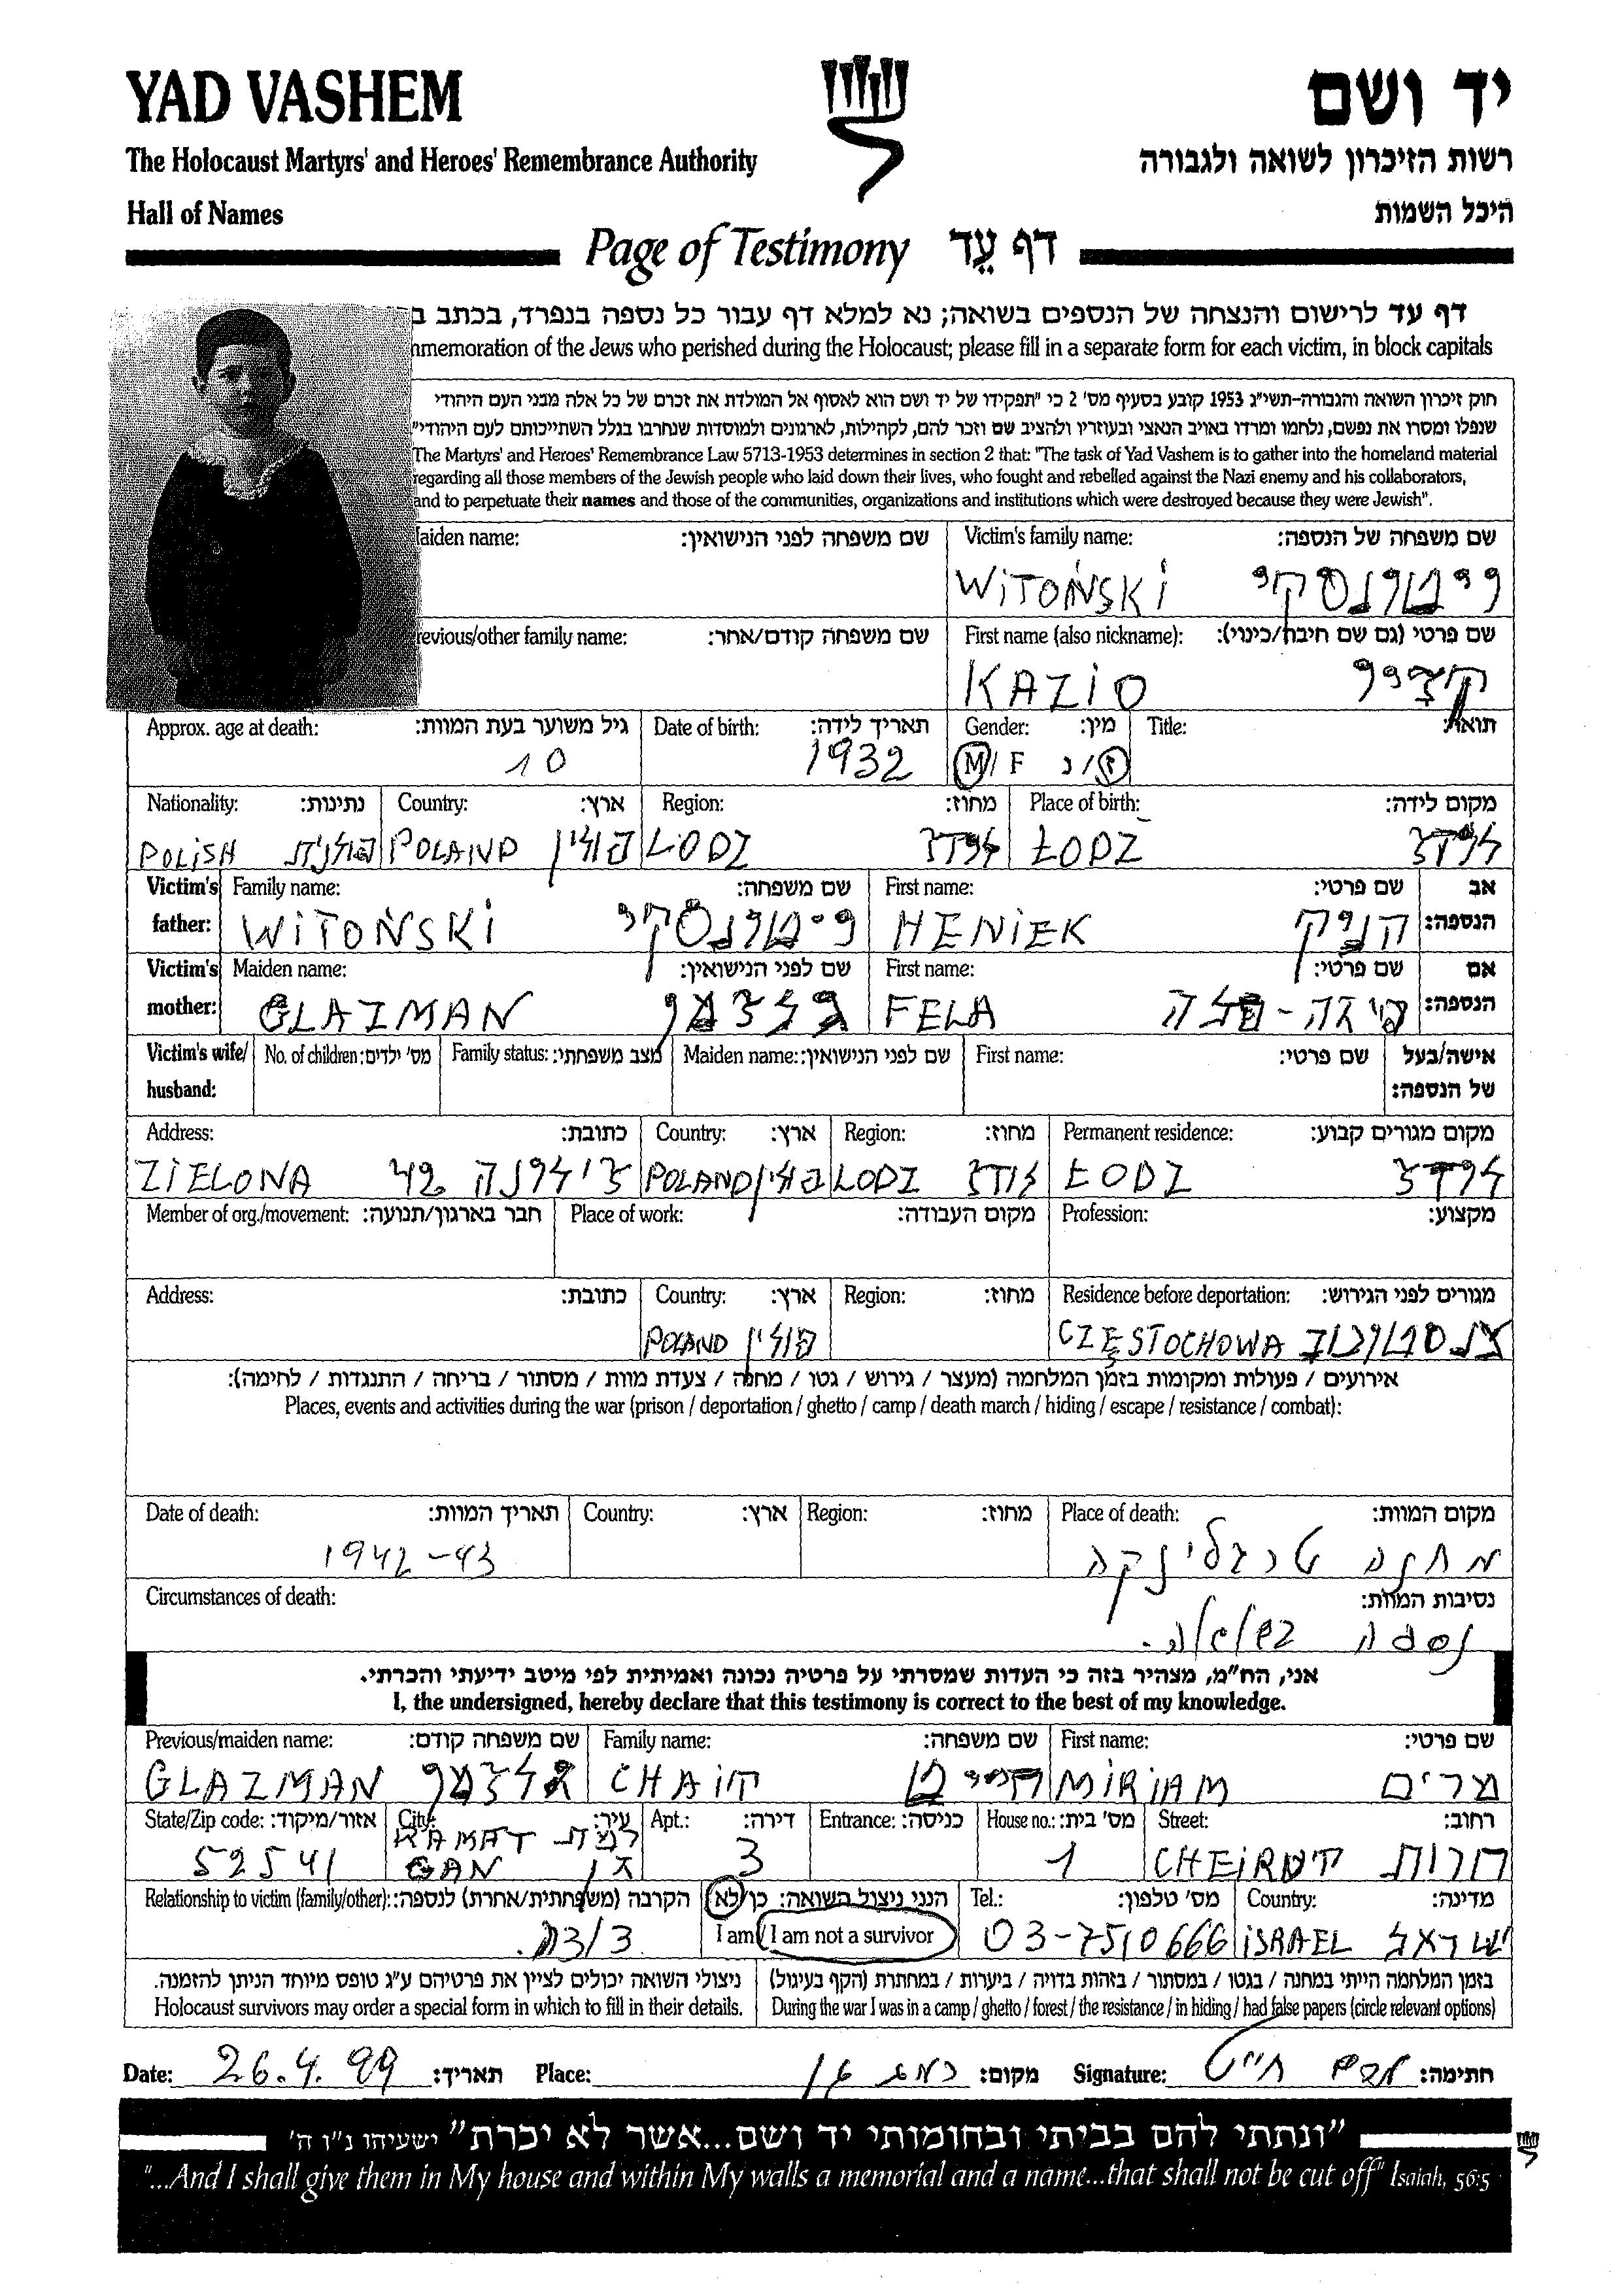 YAD VASHEM
יד ושם
The Holocaust Martyrs' and Heroes' Remembrance Authority
רשות הזיכרון לשואה ולגבורה
Hall of Names
היכל השמות
Page of Testimony דף עֵד
דף עד לרישום והנצחה של הנספים בשואה; נא למלא דף עבור כל נספה בנפרד, בכתב ב
nmemoration of the Jews who perished during the Holocaust; please fill in a separate form for each victim, in block capitals
חוק זיכרון השואה והגבורה-תשי"ג 1953 קובע בסעיף מס' 2 כי "תפקידו של יד ושם הוא לאסוף אל המולדת את זכרם של כל אלה מבני העם היהודי
שנפלו ומסרו את נפשם, נלחמו ומרדו באויב הנאצי ובעוזריו ולהציב שם וזכר להם, לקהילות, לארגונים ולמוסדות שנחרבו בגלל השתייכותם לעם היהודי"
The Martyrs' and Heroes' Remembrance Law 5713-1953 determines in section 2 that: "The task of Yad Vashem is to gather into the homeland material
regarding all those members of the Jewish people who laid down their lives, who fought and rebelled against the Nazi enemy and his collaborators,
and to perpetuate their names and those of the communities, organizations and institutions which were destroyed because they were Jewish".
aiden name: שם משפחה לפני הנישואין: Victim's family name: שם משפחה של הנספה:
WITOŃSKI ויטונסקי
revious/other family name: שם משפחה קודם/אחר: First name (also nickname): שם פרטי (גם שם חיבה/כינוי):
KAZIO קציו
Approx. age at death: גיל משוער בעת המוות: Date of birth: תאריך לידה: Gender: מין: Title: תואר:
10 1932 M/F ז/נ
Nationality: נתינות: Country: ארץ: Region: מחוז: Place of birth: מקום לידה:
POLISH פולנית POLAND פולין LODZ לודז ŁODZ לודז
Victim's father: Family name: שם משפחה: First name: שם פרטי: אב הנספה:
WITOŃSKI ויטונסקי HENIEK הניק
Victim's mother: Maiden name: שם לפני הנישואין: First name: שם פרטי: אם הנספה:
GLAZMAN גלזמן FELA פלה
Victim's wife/ husband: No. of children: מס' ילדים: Family status: מצב משפחתי: Maiden name: שם לפני הנישואין: First name: שם פרטי: אישה/בעל של הנספה:
Address: כתובת: Country: ארץ: Region: מחוז: Permanent residence: מקום מגורים קבוע:
ZIELONA 42 זילונה POLAND פולין LODZ לודז ŁODZ לודז
Member of org./movement: חבר בארגון/תנועה: Place of work: מקום העבודה: Profession: מקצוע:
Address: כתובת: Country: ארץ: Region: מחוז: Residence before deportation: מגורים לפני הגירוש:
POLAND פולין CZĘSTOCHOWA צנסטוכוב
אירועים / פעולות ומקומות בזמן המלחמה (מעצר / גירוש / גטו / מחנה / צעדת מוות / מסתור / בריחה / התנגדות / לחימה):
Places, events and activities during the war (prison / deportation / ghetto / camp / death march / hiding / escape / resistance / combat):
Date of death: תאריך המוות: Country: ארץ: Region: מחוז: Place of death: מקום המוות:
1942-43 מחנה טרבלינקה
Circumstances of death: נסיבות המוות:
נספה בשואה.
אני, הח"מ, מצהיר בזה כי העדות שמסרתי על פרטיה נכונה ואמיתית לפי מיטב ידיעתי והכרתי.
I, the undersigned, hereby declare that this testimony is correct to the best of my knowledge.
Previous/maiden name: שם משפחה קודם: Family name: שם משפחה: First name: שם פרטי:
GLAZMAN גלזמן CHAIT חייט MIRIAM מרים
State/Zip code: אזור/מיקוד: City: עיר: Apt.: דירה: Entrance: כניסה: House no.: מס' בית: Street: רחוב:
52541 RAMAT GAN רמת גן 3 1 CHEIRUT חרות
Relationship to victim (family/other): הקרבה (משפחתית/אחרת) לנספה: הנני ניצול השואה: כן/לא Tel.: מס' טלפון: Country: מדינה:
I am / I am not a survivor 03-7510666 ISRAEL ישראל
ניצולי השואה יכולים לציין את פרטיהם ע"ג טופס מיוחד הניתן להזמנה. בזמן המלחמה הייתי במחנה / בגטו / במסתור / בזהות בדויה / ביערות / במחתרת (הקף בעיגול)
Holocaust survivors may order a special form in which to fill in their details. During the war I was in a camp / ghetto / forest / the resistance / in hiding / had false papers (circle relevant options)
Date: 26.4.99 תאריך: Place: רמת גן מקום: Signature: מרים חייט חתימה:
"ונתתי להם בביתי ובחומותי יד ושם...אשר לא יכרת" ישעיהו נ"ו ה'
"...And I shall give them in My house and within My walls a memorial and a name...that shall not be cut off" Isaiah, 56:5